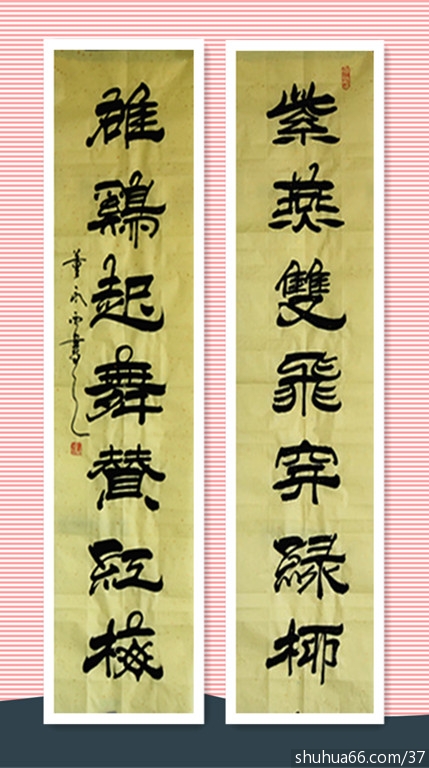 紫燕雙飛穿綠柳
雄鷄起舞贊紅梅
shuhua66.com/37